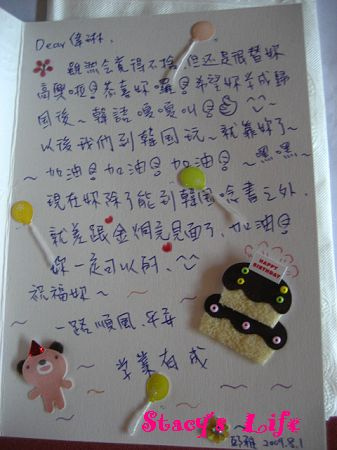 Dear 偉琳.
雖然會覺得不捨.但還是很替妳
高興啦!恭喜妳囉!希望妳學成歸
國後~韓語嘎嘎叫!
以後我們到韓国玩~就靠妳了~
~加油!加油!加油!~嘿嘿~
現在妳除了能到韓国唸書之外.
就差跟金炯完見面了.加油!
妳一定可以的.^^
祝福妳~
一路順風.平安
學業有成
HAPPY
BIRTHDAY
Stacy's Life
2009.8.1